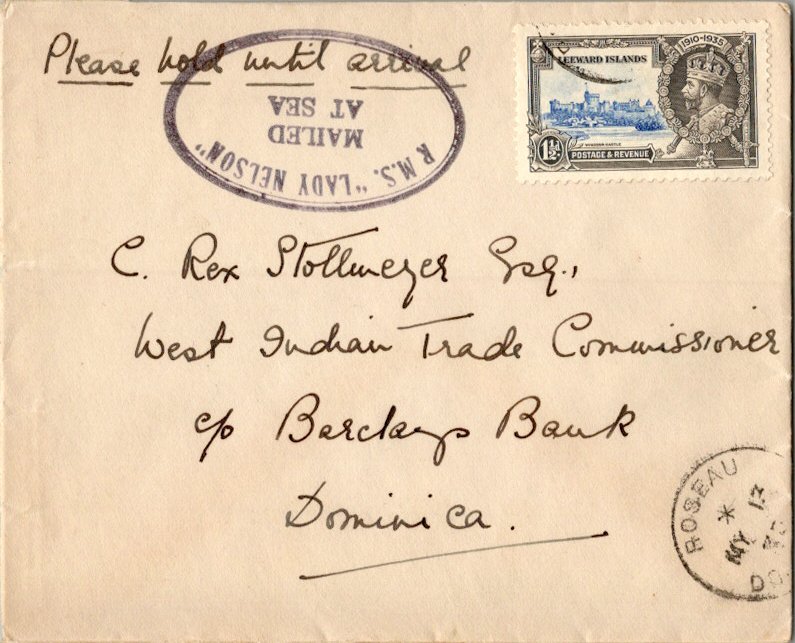 Please hold until arrival
R.M.S. "LADY NELSON"
MAILED
AT SEA
1910-1935
LEEWARD ISLANDS
WINDSOR CASTLE
1½D
POSTAGE & REVENUE
C. Rex Stollmeyer Esq.,
West Indian Trade Commissioner
c/o Barclays Bank
Dominica.
ROSEAU
*
MY 13
DO